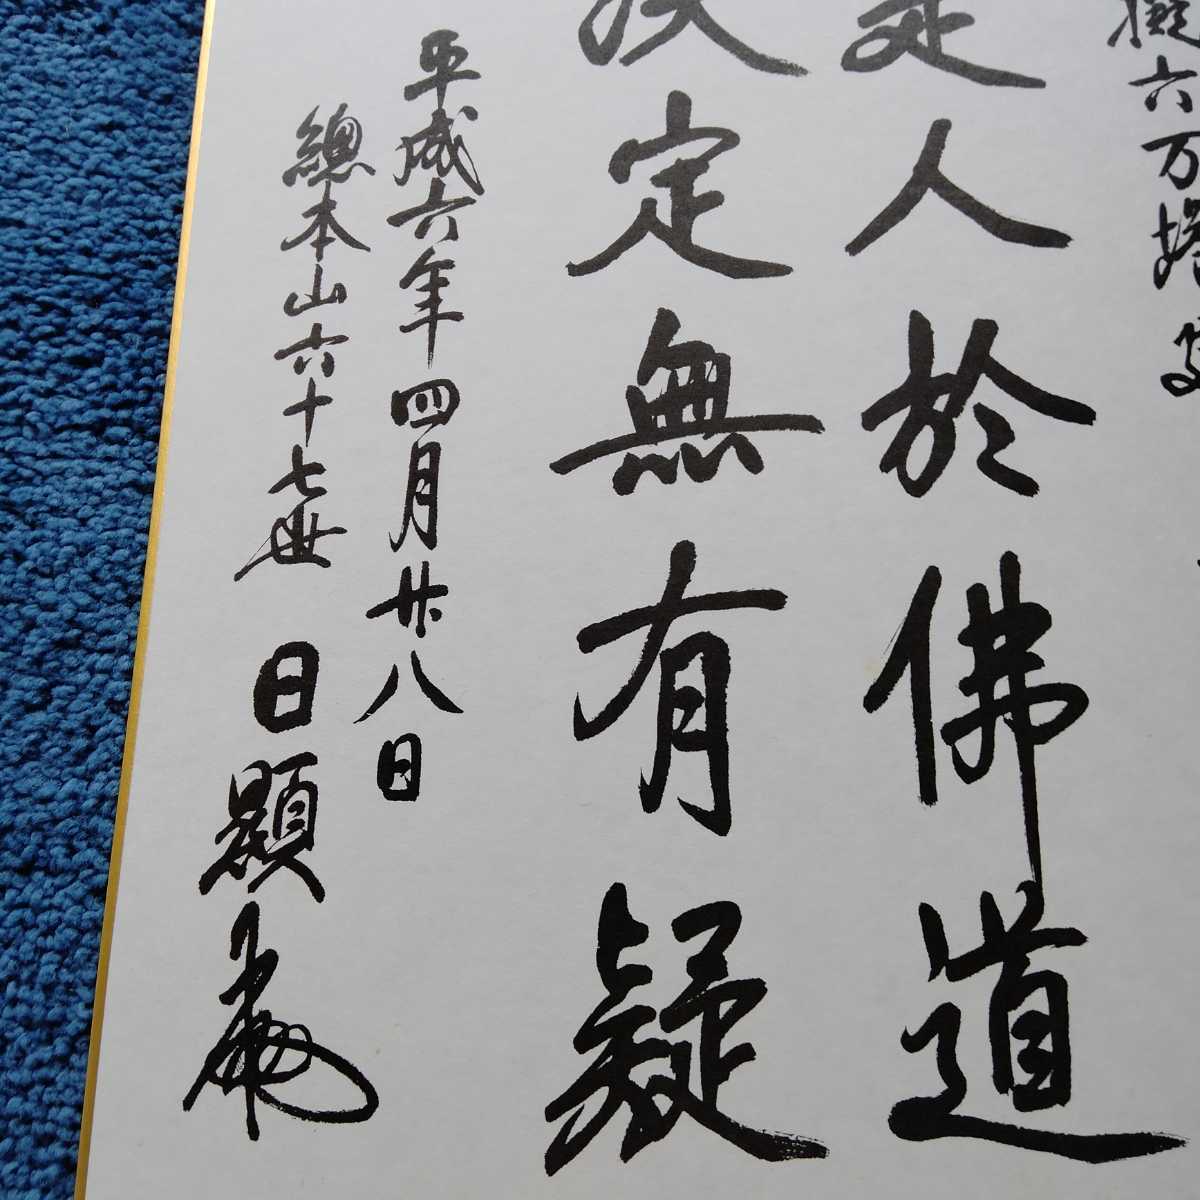 擬六万塔
是人於佛道
決定無有疑
平成六年四月廿八日
總本山六十七世
日顕